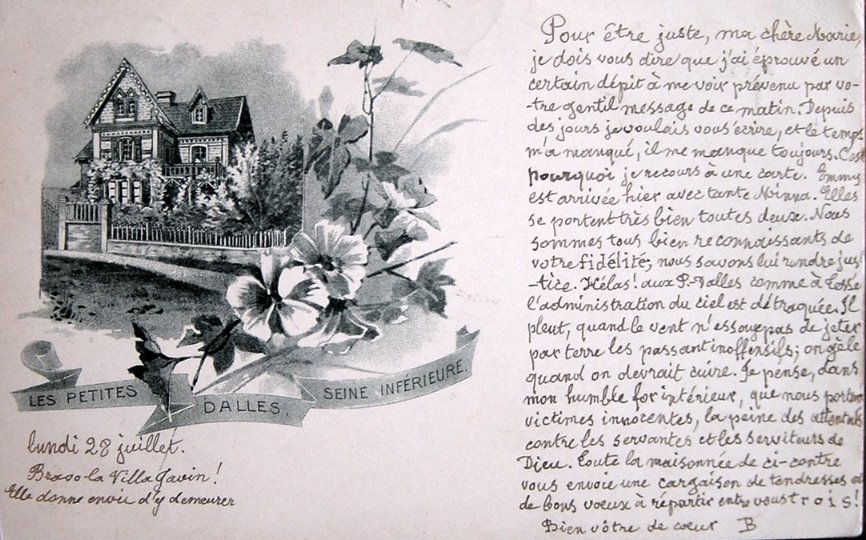 LES PETITES DALLES. SEINE INFÉRIEURE.
lundi 28 juillet.
Bravo la Villa Gavin!
Elle donne envie d'y demeurer
Pour être juste, ma chère Marie,
je dois vous dire que j'ai éprouvé un
certain dépit à me voir prévenu par vo-
-tre gentil message de ce matin. Depuis
des jours je voulais vous écrire, et le temps
m'a manqué, il me manque toujours. C'est
pourquoi je recours à une carte. Emmy
est arrivée hier avec tante Minna. Elles
se portent très bien toutes deux. Nous
sommes tous bien reconnaissants de
votre fidélité, nous savons lui rendre jus
-tice. Hélas! aux P-Dalles comme à Fosse
l'administration du ciel est détraquée. Il
pleut, quand le vent n'essaye pas de jeter
par terre les passants inoffensifs; on gèle
quand on devrait cuire. Je pense, dans
mon humble for intérieur, que nous portons
victimes innocentes, la peine des attentats
contre les servantes et les serviteurs de
Dieu. Toute la maisonnée de ci-contre
vous envoie une cargaison de tendresses et
de bons voeux à répartir entre vous trois!
Bien vôtre de coeur B